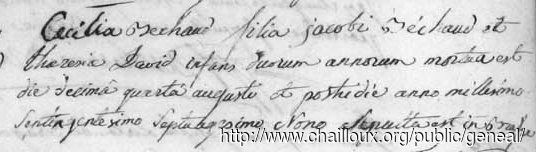 Cecilia Bechaud filia jacobi Béchaud et
theresia David infans duorum annorum mortua est
die decimâ quartâ augusti et postridie anno millesimo
septingentesimo septuagesimo Nono Sepulta est in
http://www.chailloux.org/public/geneal/